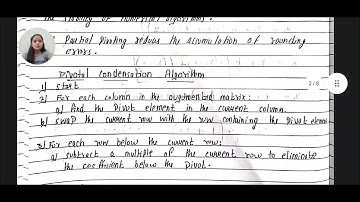 the stability of numerical algorithms.
Partial Pivoting reduces the accumulation of rounding
errors.
Pivotal Condensation Algorithm
1) Start
2) For each column in the augmented matrix:
a) find the Pivot element in the current column.
b) swap the current row with the row containing the Pivot element
3) For each row below the current row:
a) subtract a multiple of the current row to eliminate
the coefficient below the pivot.
2/8